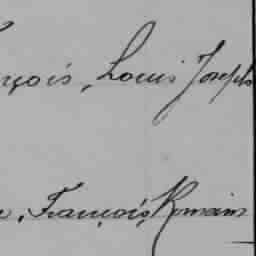 nçois, Louis Joseph
e, François, Romain